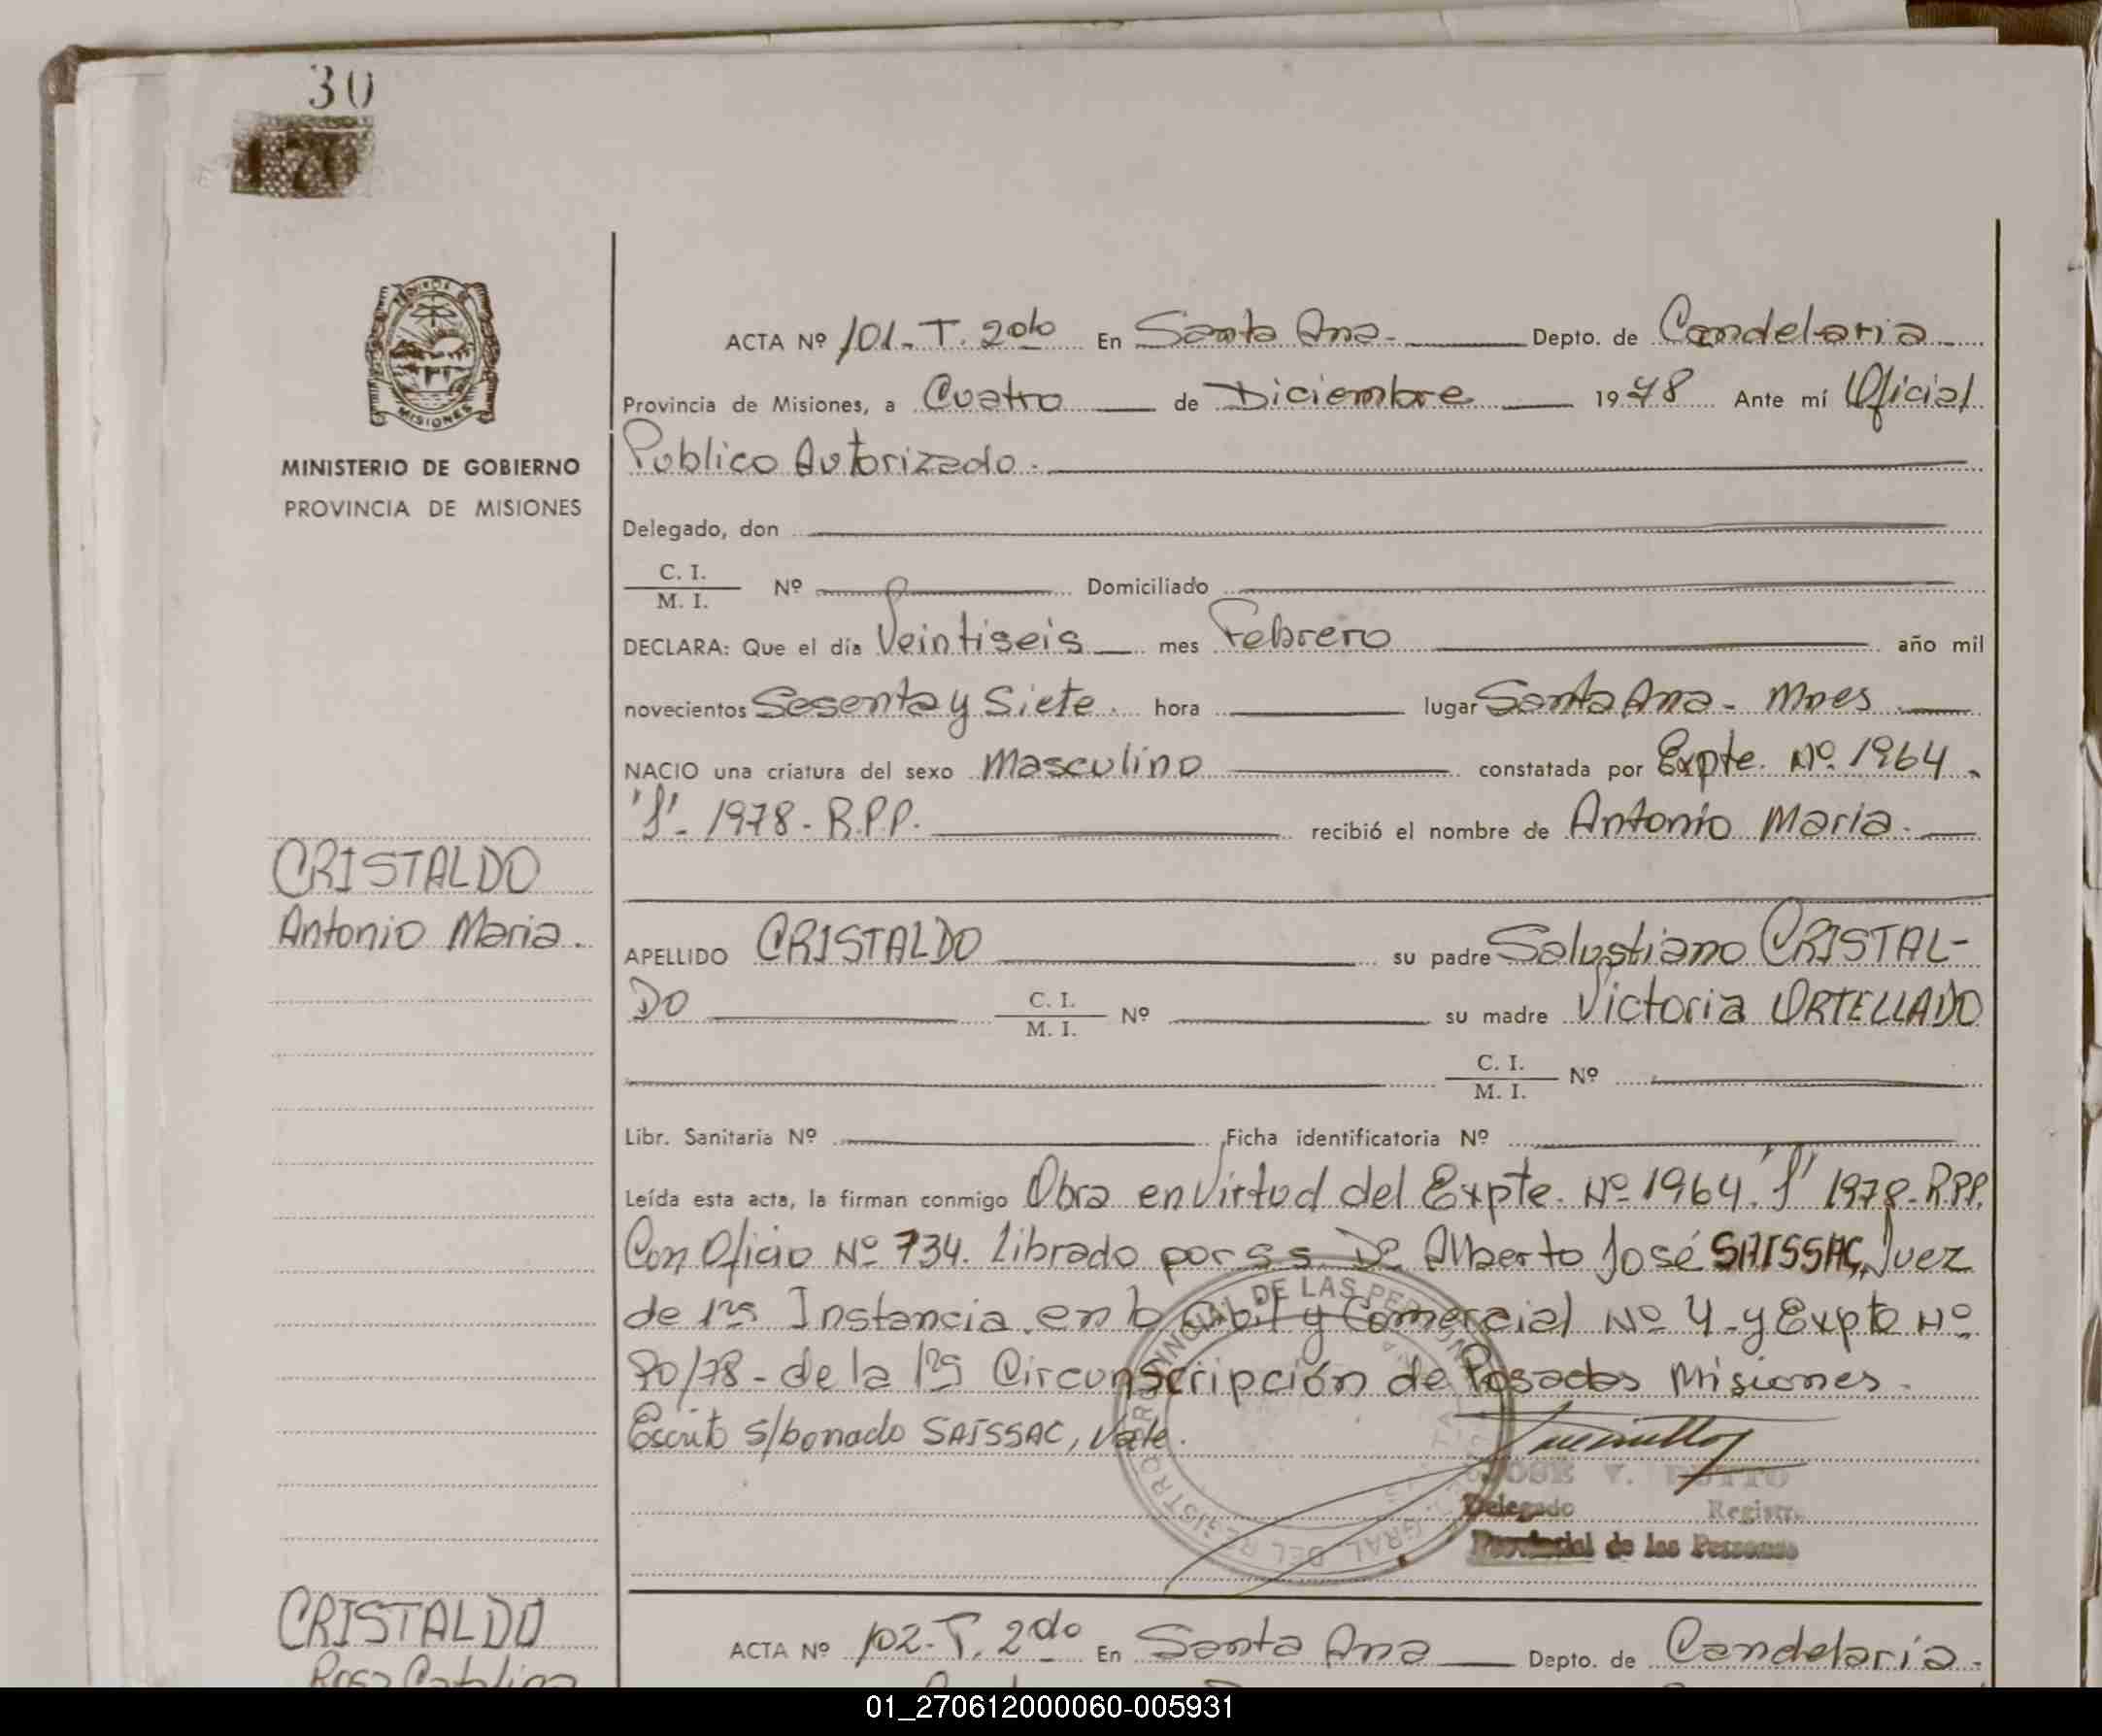 30
170
MISIONES
MINISTERIO DE GOBIERNO
PROVINCIA DE MISIONES
ACTA Nº 101-T. 2do En Santa Ana.- Depto. de Candelaria
Provincia de Misiones, a Cuatro de Diciembre 1978 Ante mí Oficial
Publico Autorizado.
Delegado, don
C. I.
M. I. Nº Domiciliado
DECLARA: Que el día Veintiseis mes Febrero año mil
novecientos Sesenta y Siete. hora lugar Santa Ana - Mnes
NACIO una criatura del sexo Masculino constatada por Expte. Nº 1964.
1978 - R.P.P. recibió el nombre de Antonio Maria.
CRISTALDO
Antonio Maria.
APELLIDO CRISTALDO su padre Salustiano CRISTAL-
DO C. I.
M. I. Nº su madre Victoria ORTELLADO
C. I.
M. I. Nº
Libr. Sanitaria Nº Ficha identificatoria Nº
Leída esta acta, la firman conmigo Obra en Virtud del Expte. Nº 1964. 1978-R.P.P.
Con Oficio Nº 734. Librado por S.S. Dr. Alberto José SAISSAC, Juez
de 1ra Instancia en lo Civil y Comercial Nº 4 - y Expte Nº
/78 - de la 1ra Circunscripción de Posadas Misiones.
Escrito s/borrado SAISSAC, Vale.
PROVINCIAL DE LAS PERSONAS
GRAL DEL REGISTRO
JOSE V.
Delegado Registro
Provincial de las Personas
CRISTALDO
Rosa Catalina
ACTA Nº 102-T. 2do En Santa Ana Depto. de Candelaria.
01_270612000060-005931